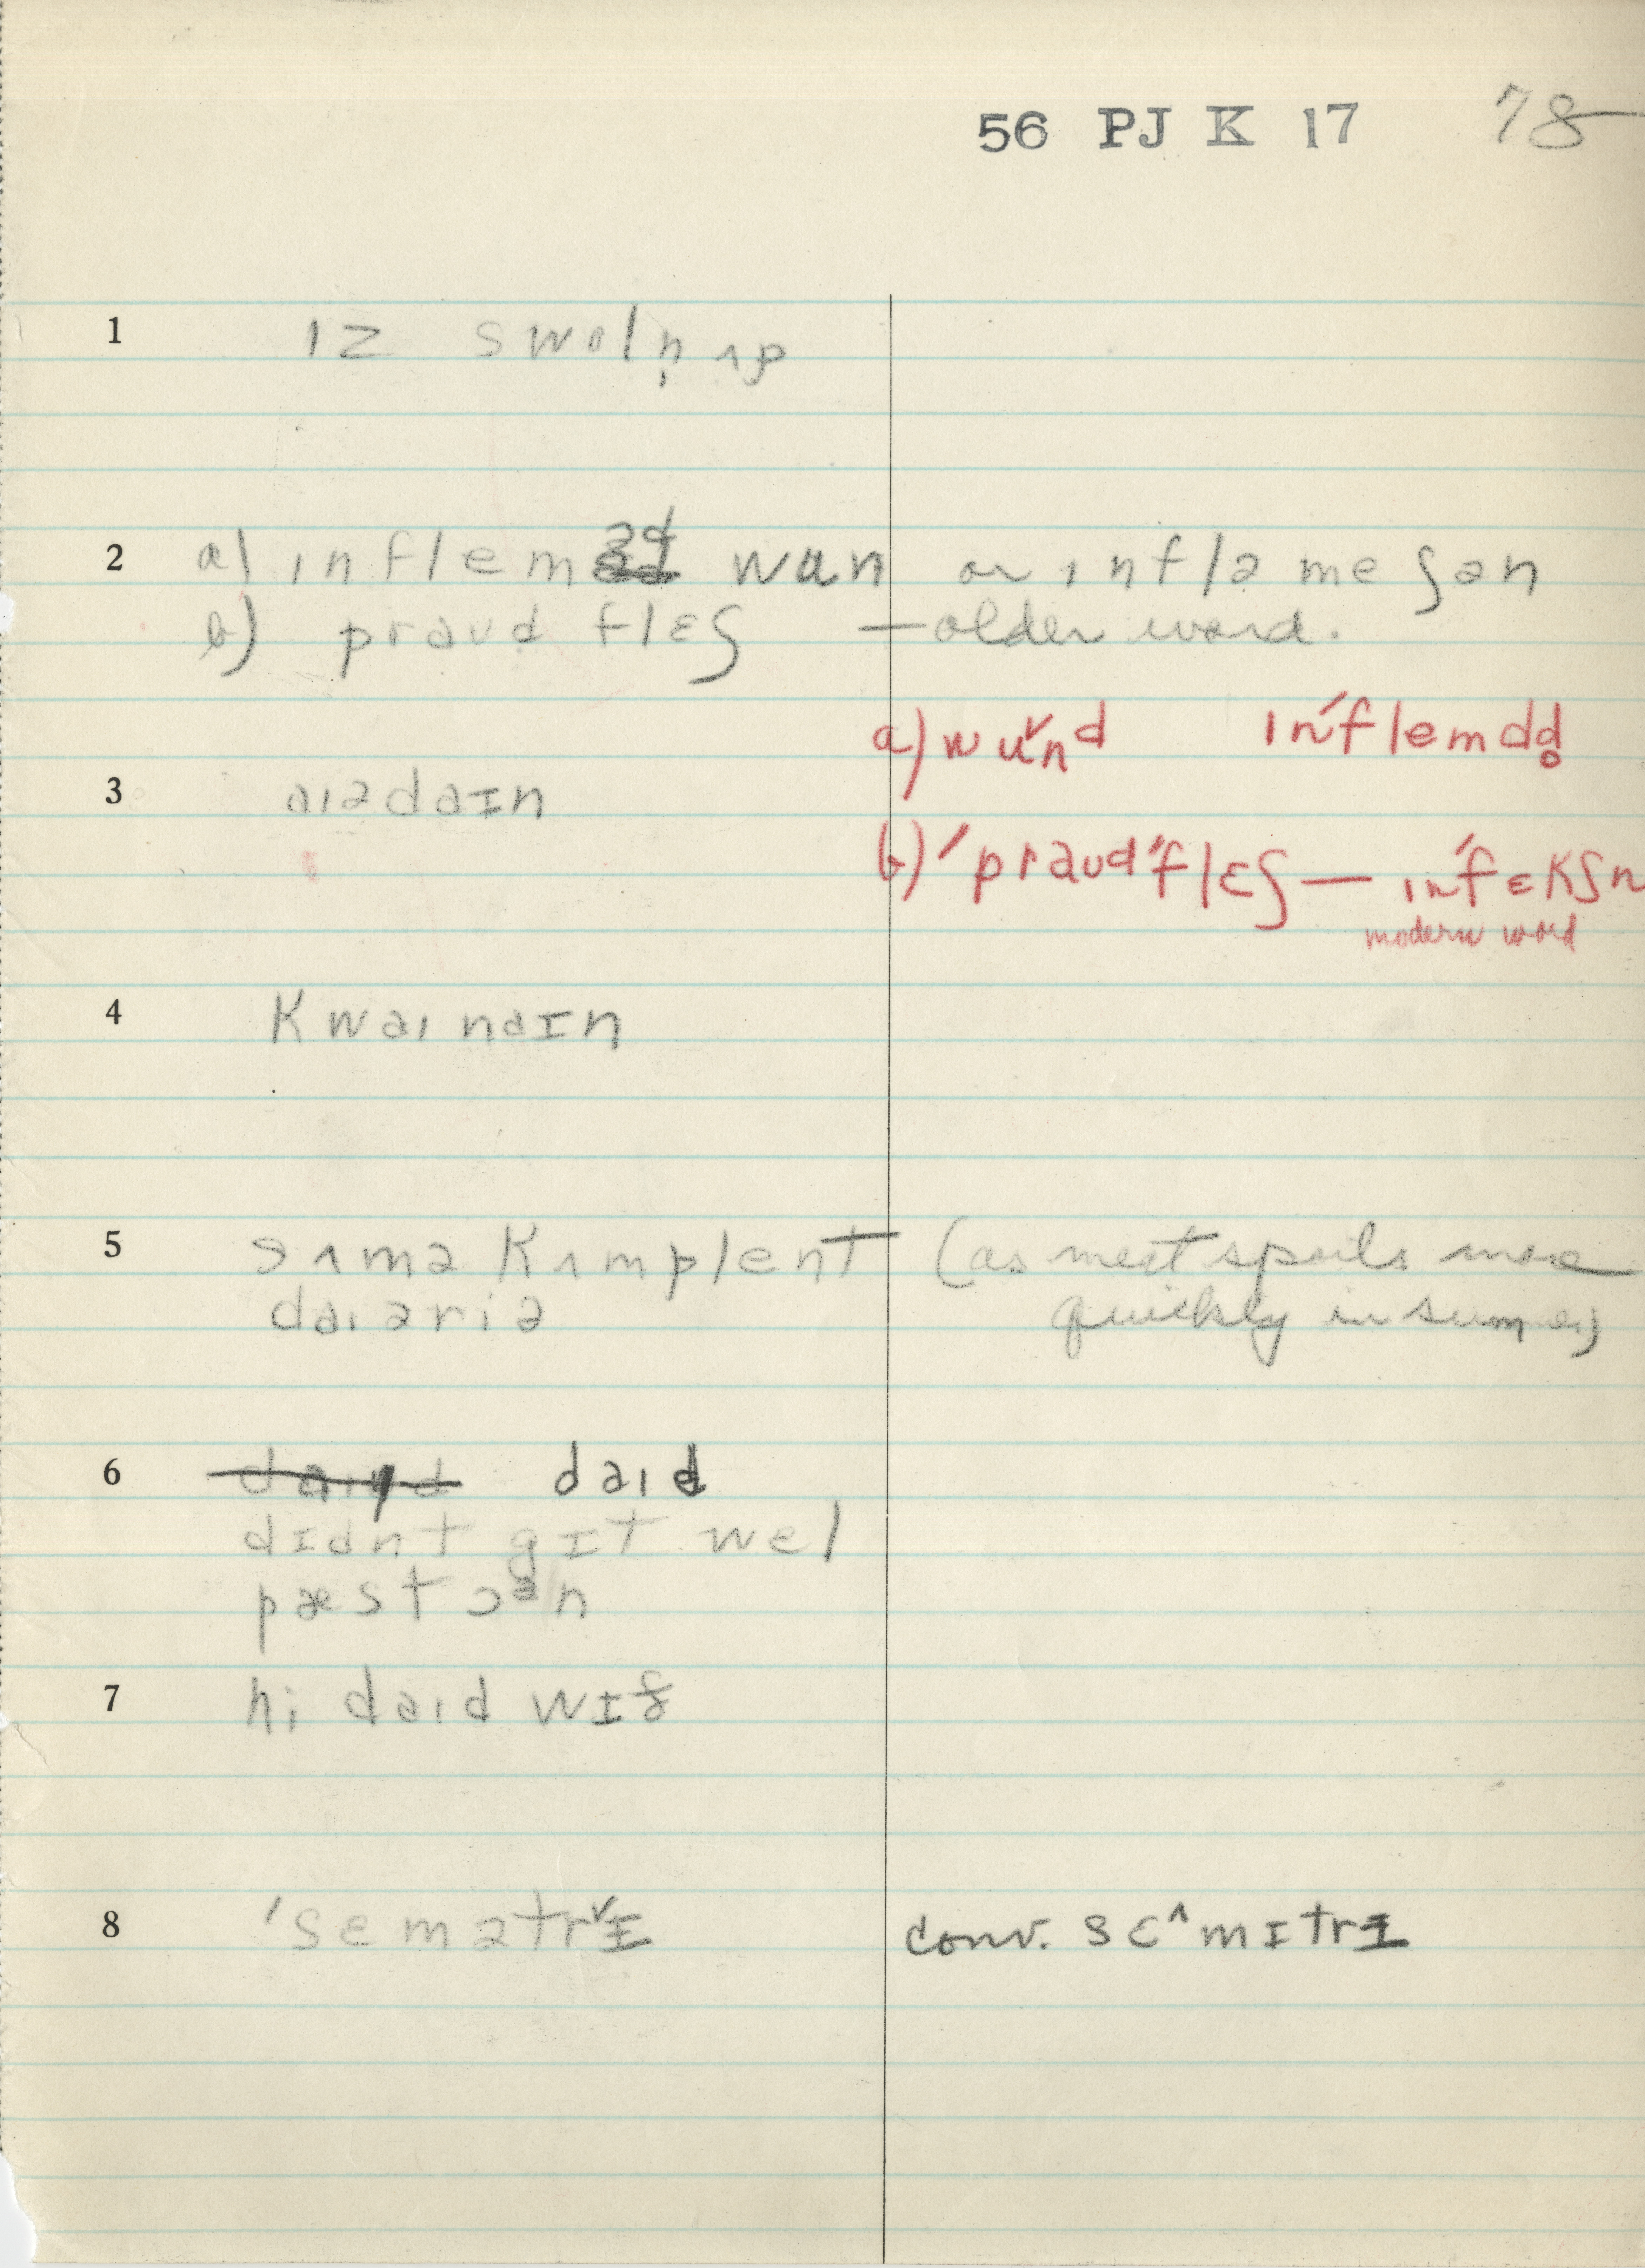 56 PJ K 17 78
1 ɪz swoln̩ ʌp
2 a) ɪnfleməd wun or ɪnfləmeʃən
b) praʊd flɛʃ — older word.
a) wu˅nd ɪn'flemdd̥
3 aɪədaɪn
b) 'praʊd'flɛʃ — ɪn'fɛkʃn
modern word
4 kwaɪnaɪn
5 sʌmə kʌmplent (as meat spoils more
daɪəriə quickly in summer)
6 daɪd
dɪdnt gɪt wel
pæst ɔən
7 hi daɪd wɪθ
8 'sɛmətr˅ɪ conv. sɛ^mɪtrɪ